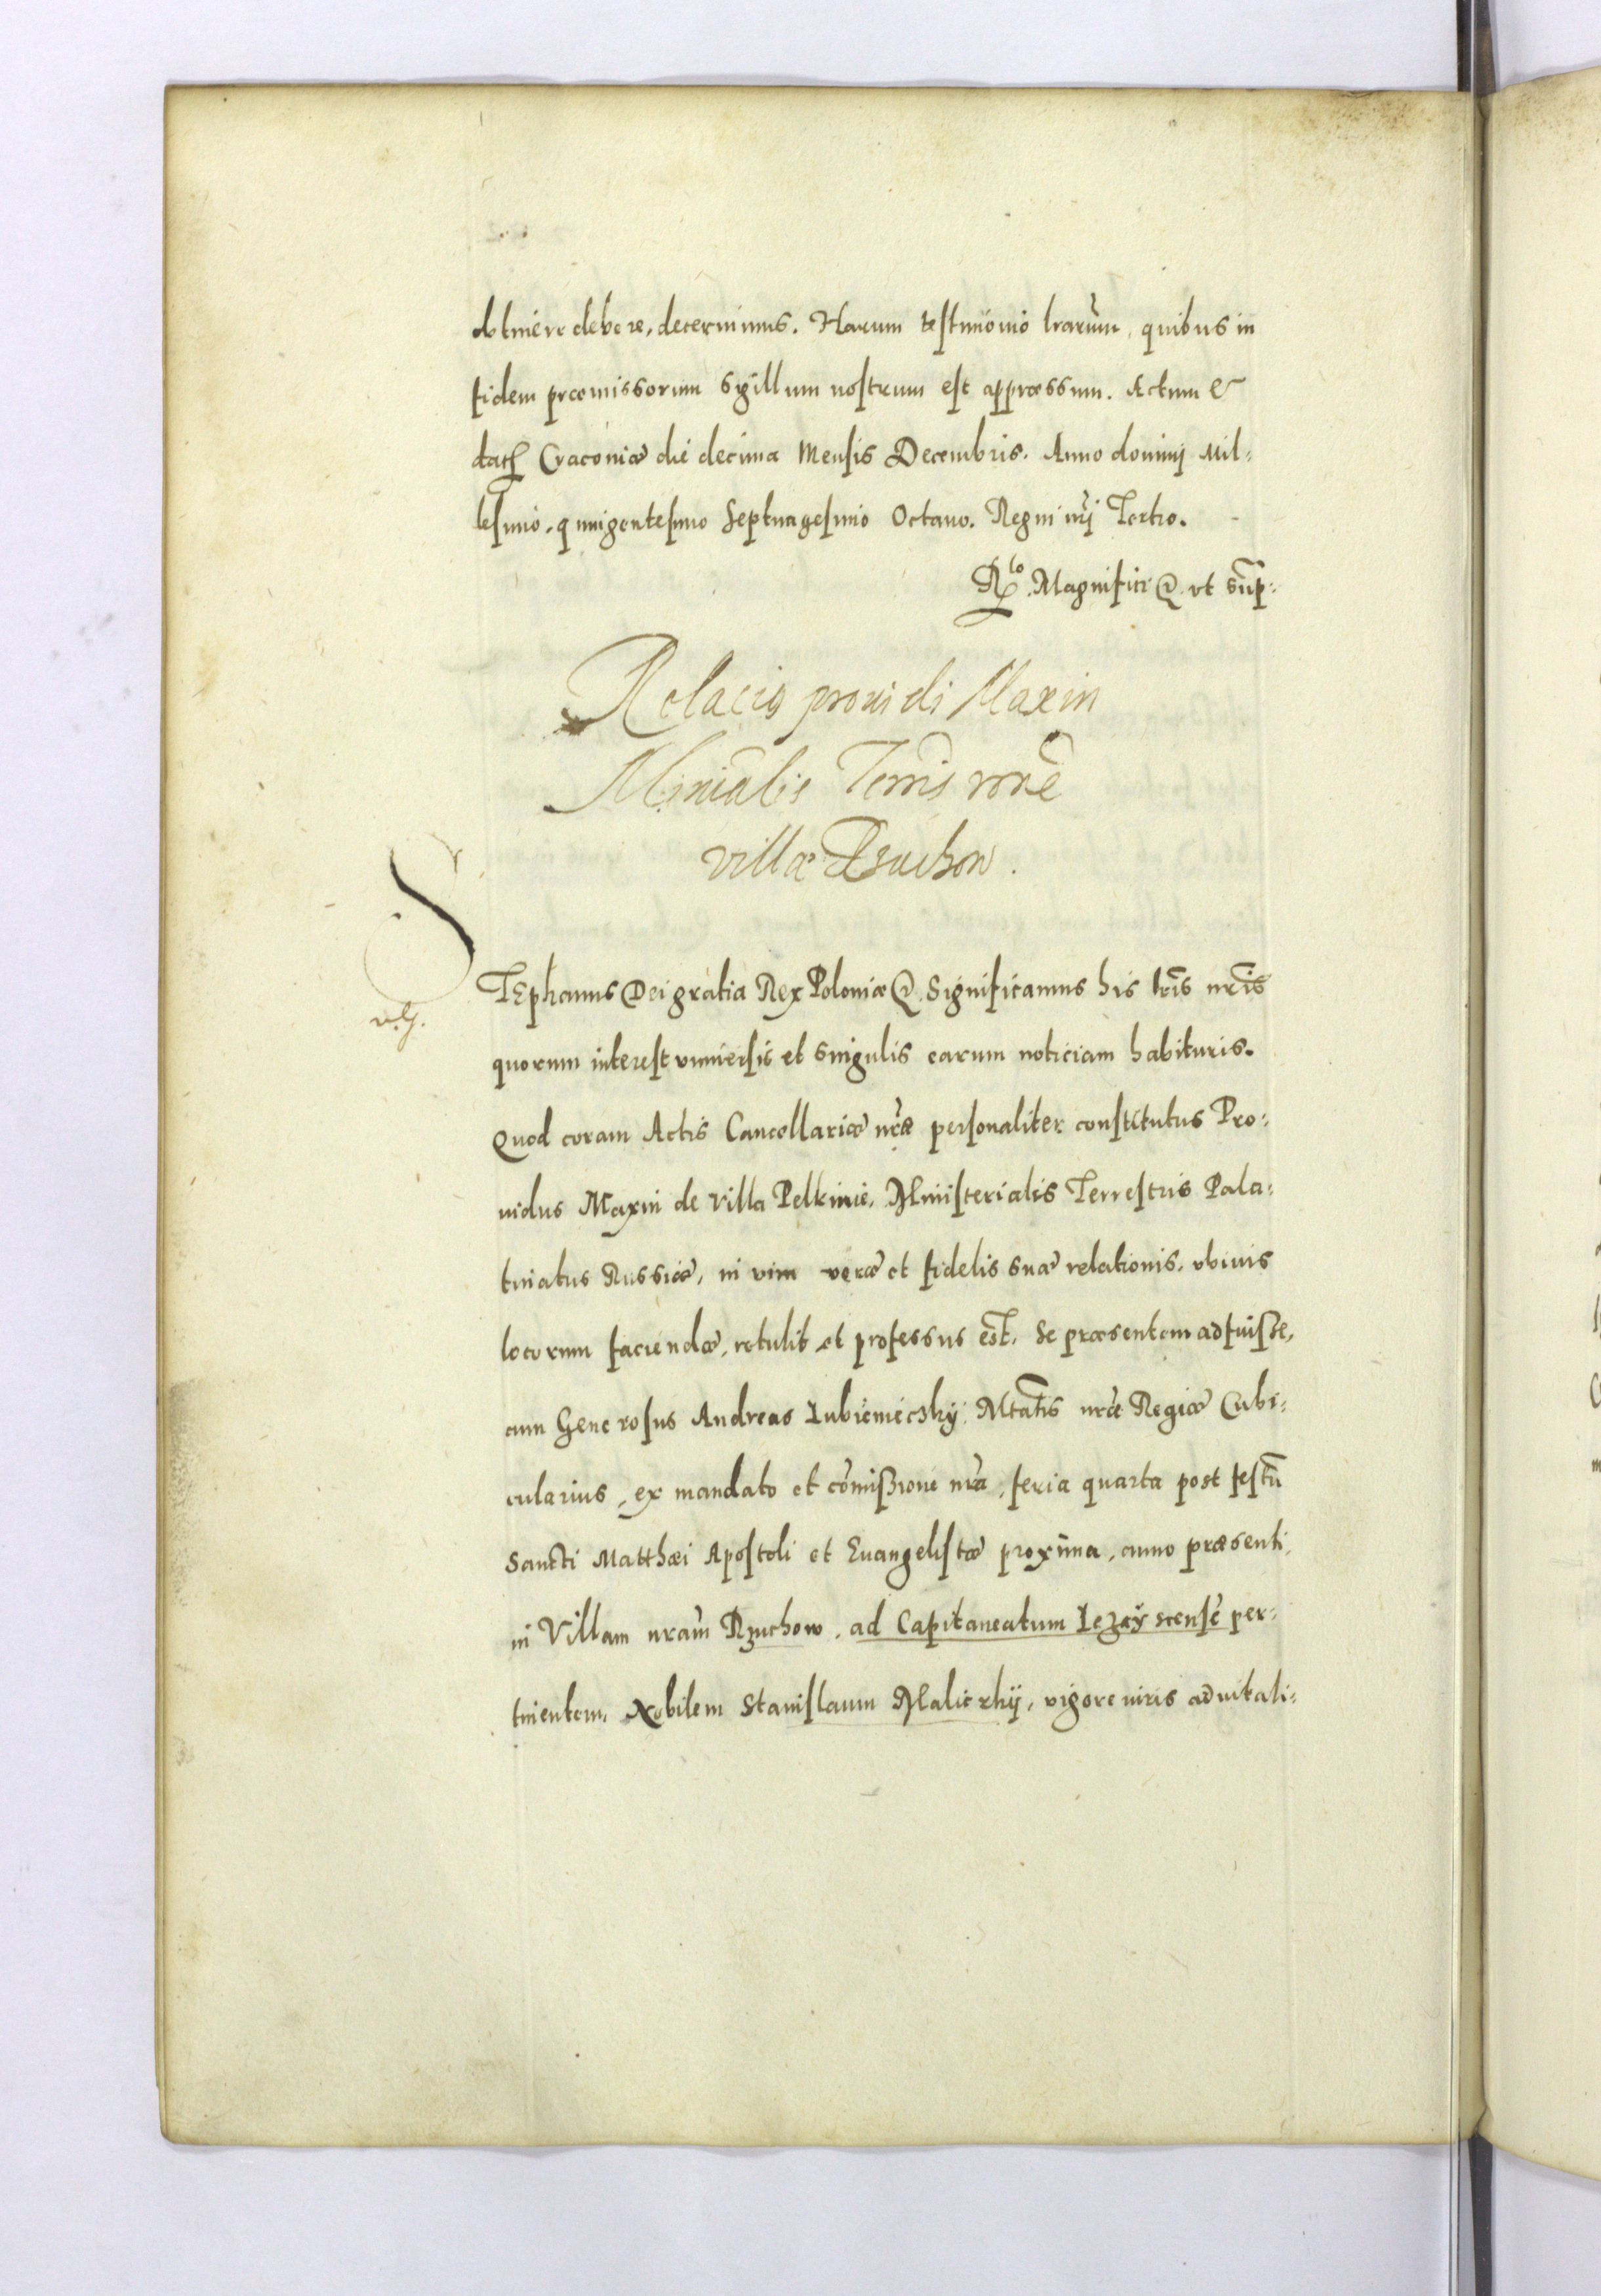 obtinere debere, decernimus. Harum testimonio lrarum, quibus in
fidem præmissorum Sigillum nostrum est appræssum. Actum &
dat Cracoviæ die decima Mensis Decembris. Anno dominij Mil=
lesimo. quingentesimo Septuagesimo Octauo. Regni nrj Tertio.
Rlo. Magnifici @ vt sup:
Relacio prouidi Maxin
Minialis Terris rone
villæ Rzuchow.
STEphanus Dei gratia Rex Poloniæ @. Significamus his lris nris
quorum interest vniuersis et singulis earum noticiam habituris.
Quod coram Actis Cancellariæ nræ personaliter constitutus Pro=
uidus Maxin de Villa Pelkinie. Ministerialis Terrestris Pala=
tinatus Russiæ, in vim veræ et fidelis suæ relationis, vbiuis
locorum faciendæ, retulit et professus est. Se præsentem adfuisse,
cum Generosus Andreas Lubieniecskÿ Mtatis nræ Regiæ Cubi=
cularius, ex mandato et comissione nra, feria quarta post festu
Sancti Matthæi Apostoli et Euangelistæ proxima, anno præsenti,
in Villam nram Rzuchow, ad Capitaneatum Lezaÿscense per=
tinentem. Nobilem Stanislaum Malickij, vigore iuris aduitali=